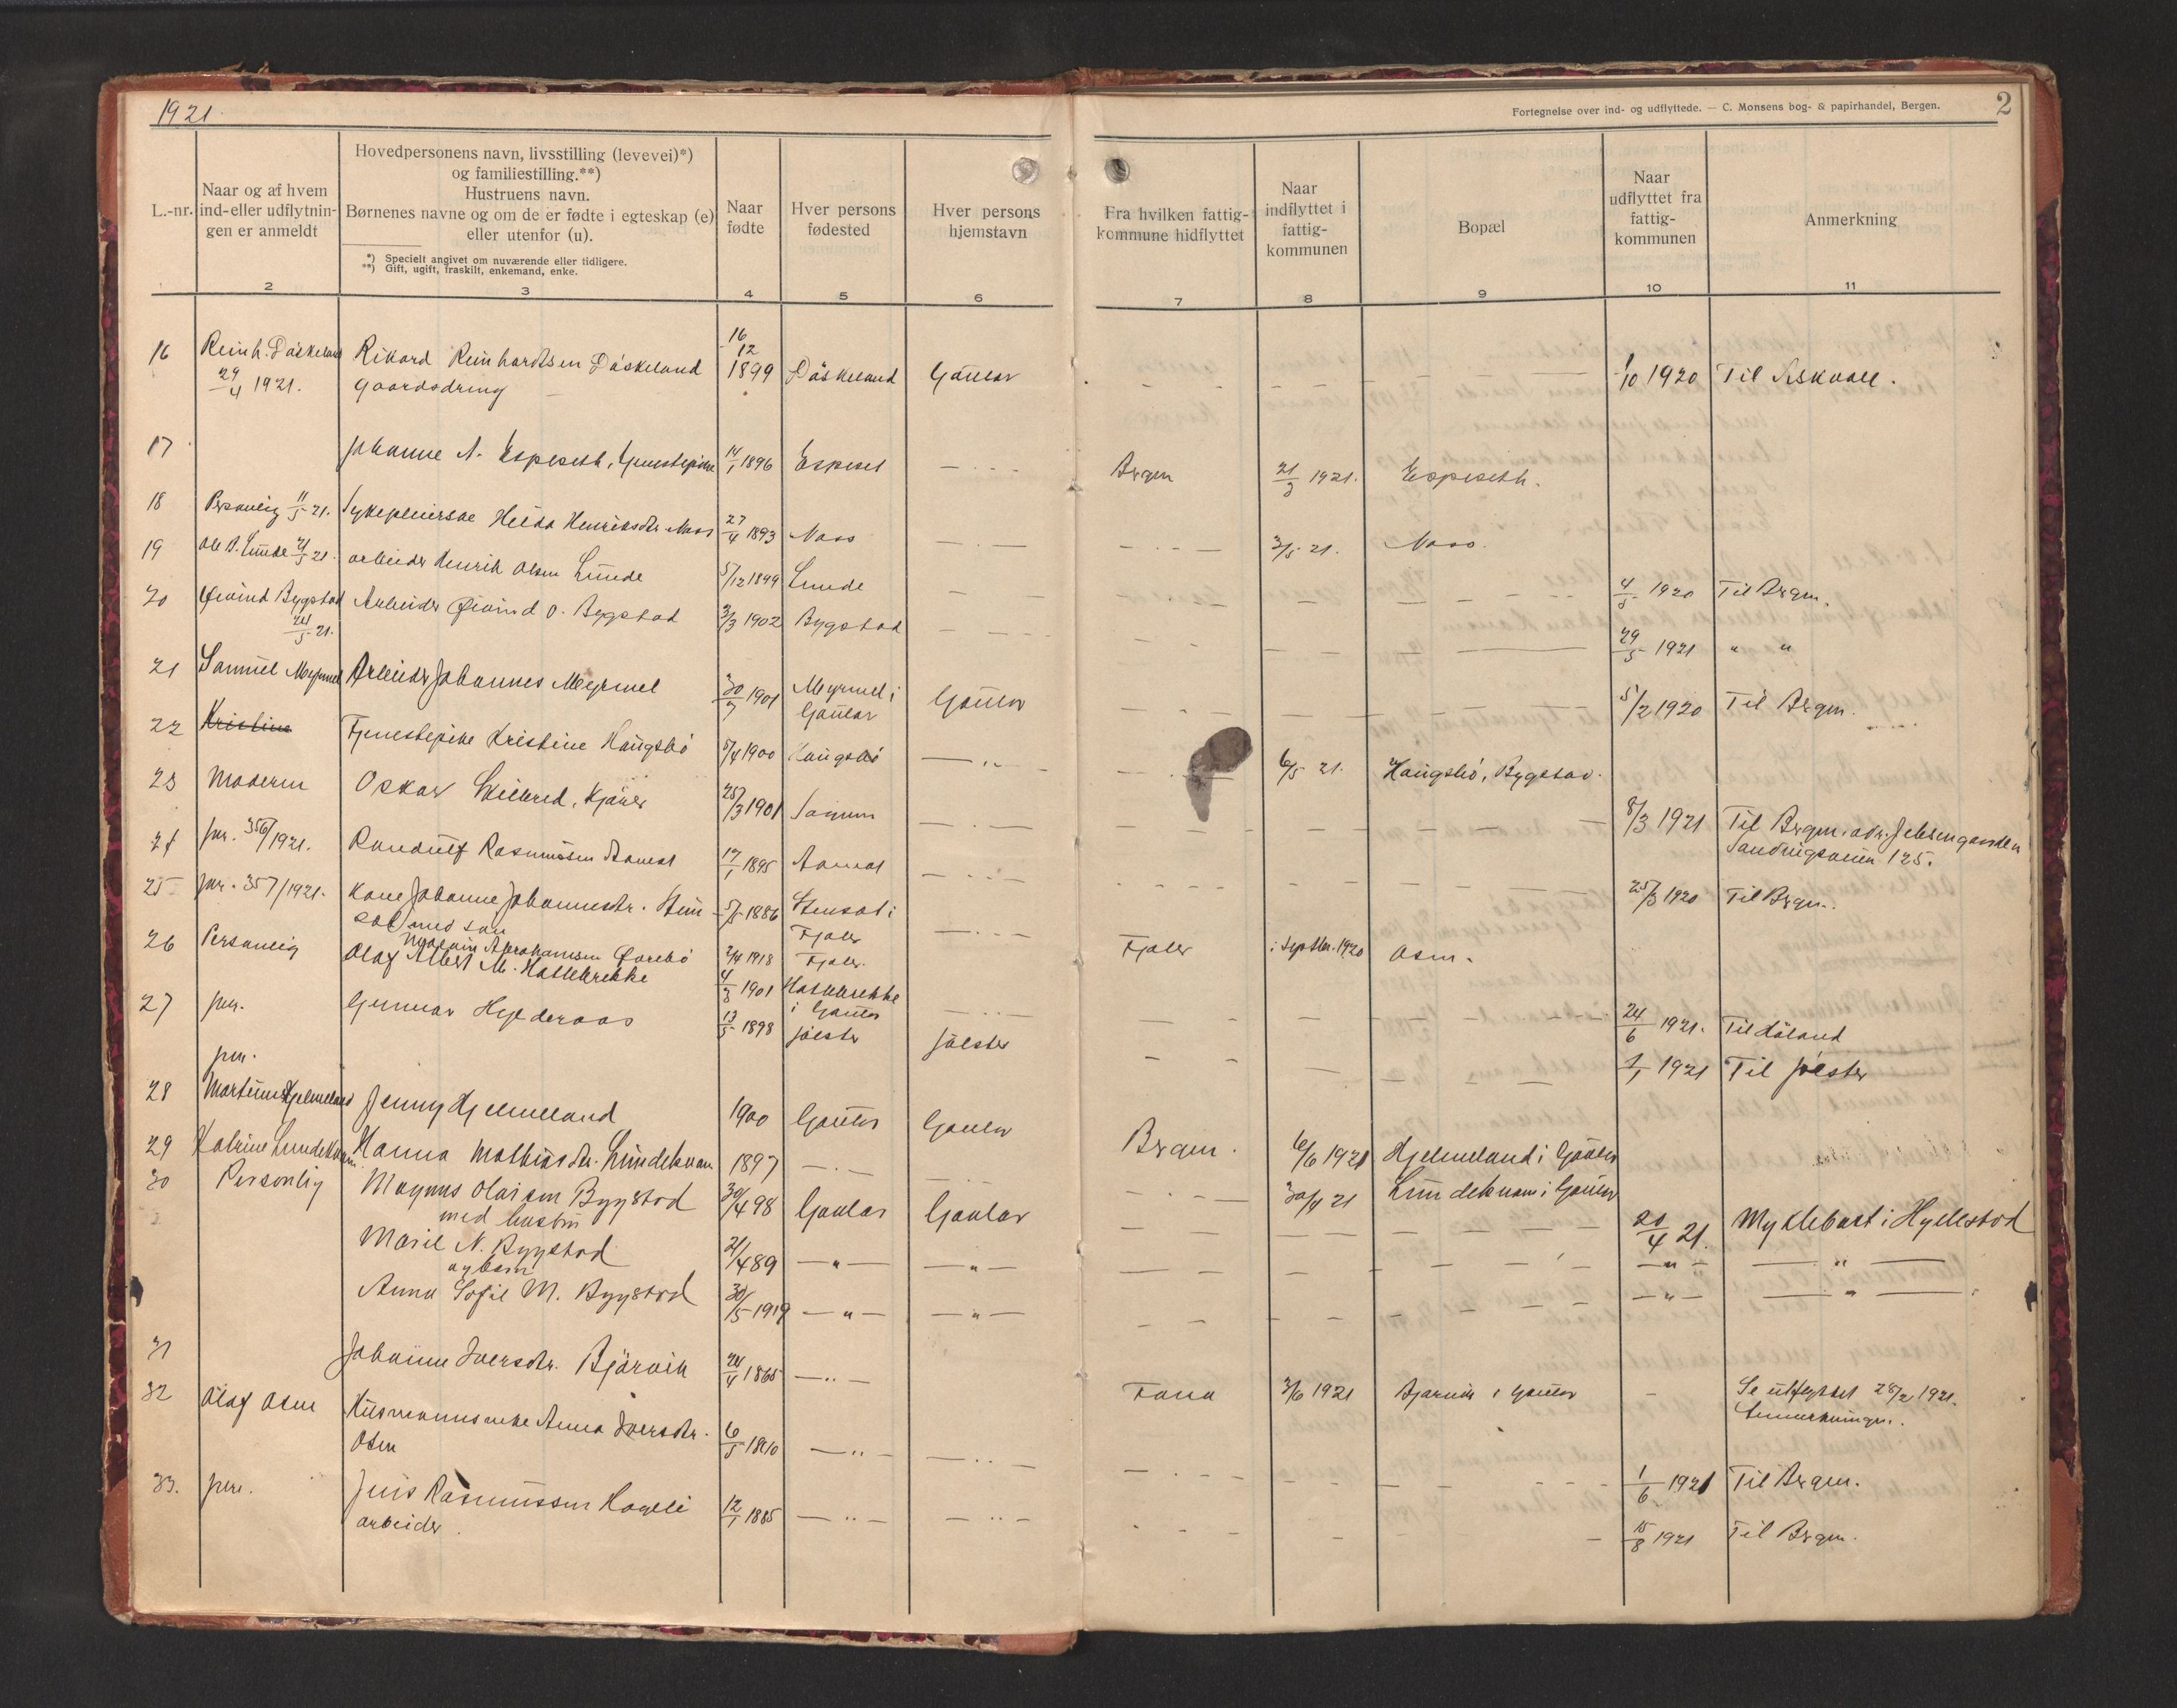 1921.
Fortegnelse over ind- og udflyttede. — C. Monsens bog- & papirhandel, Bergen.
2
L.-nr.
Naar og af hvem
ind-eller udflytnin-
gen er anmeldt
2
Hovedpersonens navn, livsstilling (levevei)*)
og familiestilling.**)
Hustruens navn.
Børnenes navne og om de er fødte i egteskap (e)
eller utenfor (u).
*) Specielt angivet om nuværende eller tidligere.
**) Gift, ugift, fraskilt, enkemand, enke.
3
Naar
fødte
4
Hver persons
fødested
5
Hver persons
hjemstavn
6
Fra hvilken fattig-
kommune hidflyttet
7
Naar
indflyttet i
fattig-
kommunen
8
Bopæl
9
Naar
udflyttet fra
fattig-
kommunen
10
Anmerkning
11
16 Reinh. Dåskeland Rikard Reinhardtsen Dåskeland 16/12 1899 Dåskeland Gaular 1/10 1920 Til Askvoll.
29/4 1921. Gaardsdreng
17 Johanne A. Espeseth, 14/1 1896 Espeset Bergen 21/3 1921. Espeseth.
18 Personlig 11/5 21. Sykepleierske Helda Henriksdtr. Moss 27/4 1893 Moss 3/5 21. Moss.
19 Ole B. Lunde 21/5 21. arbeider Henrik Olsen Lunde 5/12 1899 Lunde 4/5 1920 Til Bergen.
20 Øivind Bygstad Arbeider Øivind O. Bygstad 3/3 1902 Bygstad 29/5 1921 " "
24/5 21.
21 Samuel Myrmel Arbeider Johannes Myrmel 30/7 1901 Myrmel i Gaular Gaular 5/2 1920 Til Bergen.
22 Kristine Tjenestepike Kristine Haugsbö 5/4 1900 Haugsbö 6/5 21. Haugsbö, Bygstad.
23 Moderen Oskar Skilbred, Kjører 25/3 1901 8/3 1921 Til Bergen. adr. Jebsengaarden
Sandviksveien 125.
24 jnr. 356/1921. Randulf Rasmussen 17/1 1895 25/3 1920 Til Bergen.
25 jnr. 357/1921. Kone Johanne Johannesdtr. Sten- 5/5 1886 Stensat i Fjaler Fjaler i Septbr. 1920 Osen.
sat med søn
Abrahamsen 2/4 1918 Fjaler.
26 Personlig Olaf Albert M. Hattebrekke 4/3 1901 Hattebrekke i Gaular 24/6 1921. Til Håland
27 jnr. Gunnar Hylderaas 13/5 1898 Jölster Jölster 1/1 1921 Til Jölster
jnr.
28 Hjelmeland Jenny Hjelmeland 1900 Gaular Gaular Bergen. 6/6 1921 Hjelmeland i Gaular
29 Katrine Lundekvam Hanna Mathiasdtr. Lundekvam 1897 30/4 21 Lundekvam i Gaular
30 Personlig Magnus Olaisen Bygstad 30/4 98 Gaular Gaular 20/4 21. Myklebust i Hyllestad
med hustru
Marie N. Bygstad 21/4 89 — " — — " — — " — — " —
og barn
Anna Sofie M. Bygstad 30/5 1919 — " — — " — — " — — " —
31 Johanne Iversdtr. Bjärvik 24/4 1865 Fana 3/6 1921 Bjarvik i Gaular Se utflyttet 28/2 1921.
Anmerkningen.
32 Olaf Osen Husmannsenke Anna Iversdtr. 6/5 1810 1/6 1921 Til Bergen.
Osen
33. jnr. Jens Rasmussen Hageli 12/1 1885 15/8 1921 Til Bergen.
arbeider.